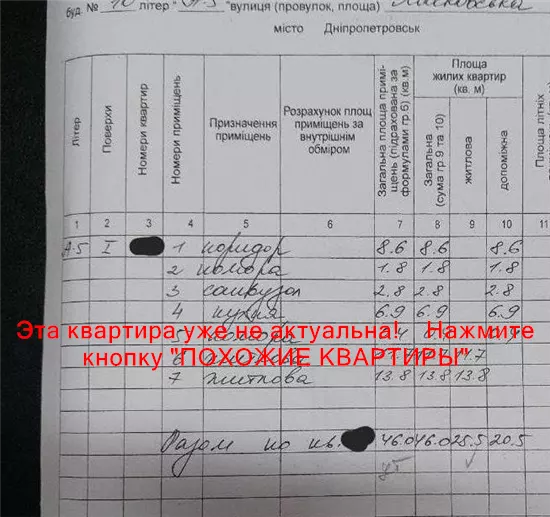 буд. № 10 літер "А-5" вулиця (провулок, площа) Московська
місто Дніпропетровськ
Літер
Поверхи
Номери квартир
Номери приміщень
Призначення приміщень
Розрахунок площ приміщень за внутрішнім обміром
Загальна площа примі-
щень (підрахована за
формулами гр.6) (кв.м)
Площа жилих квартир (кв. м)
Загальна
(сума гр. 9 та 10)
житлова
допоміжна
Площа літніх
1 2 3 4 5 6 7 8 9 10 11
А-5 I 1 коридор 8.6 8.6 8.6
2 комора 1.8 1.8 1.8
3 санвузол 2.8 2.8 2.8
4 кухня 6.9 6.9 6.9
Эта квартира уже не актуальна! Нажмите
кнопку "ПОХОЖИЕ КВАРТИРЫ"
7 житлова 13.8 13.8 13.8
Разом по кв. 46.0 46.0 25.5 20.5